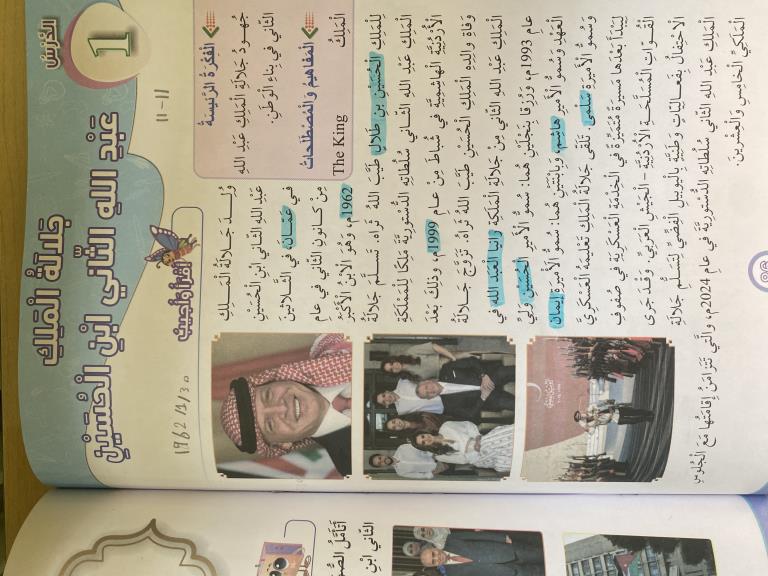 الدَّرْسُ
1
جَلالَةُ الْمَلِكِ
عَبْدِ اللهِ الثّاني ابْنِ الْحُسَيْنِ
الْفِكْرَةُ الرَّئيسَةُ
جُهودُ جَلالَةِ الْمَلِكِ عَبْدِ اللهِ
الثّاني في بِناءِ الْوَطَنِ.
الْمَفاهيمُ وَالْمُصْطَلَحاتُ
الْمَلِكُ
The King
11-11
أَقْرَأُ وَأُجيبُ
1962/1/30
وُلِدَ جَلالَةُ الْمَلِكِ
عَبْدِ اللهِ الثّاني ابْنِ الْحُسَيْنِ
في عَمّانَ، في الثَّلاثينَ
مِنْ كانونَ الثّاني في عامِ
1962م، وَهُوَ الِابْنُ الْأَكْبَرُ
لِلْمَلِكِ الْحُسَيْنِ بنِ طَلالٍ طَيَّبَ اللهُ ثَراهُ. تَسَلَّمَ جَلالَةُ
الْمَلِكِ عَبْدِ اللهِ الثّاني سُلْطاتِهِ الدُّسْتورِيَّةَ مَلِكًا لِلْمَمْلَكَةِ
الْأُرْدُنِيَّةِ الْهاشِمِيَّةِ في شُباطَ مِنْ عامِ 1999م، وَذلِكَ بَعْدَ
وَفاةِ والِدِهِ الْمَلِكِ الْحُسَيْنِ طَيَّبَ اللهُ ثَراهُ. تَزَوَّجَ جَلالَةُ
الْمَلِكِ عَبْدِ اللهِ الثّاني مِنْ جَلالَةِ الْمَلِكَةِ رانْيا الْعَبْدِ اللهِ في
عامِ 1993م، وَرُزِقا بِنَجْلَيْنِ هُما: سُمُوُّ الْأَميرِ الْحُسَيْنِ وَلِيِّ
الْعَهْدِ وَسُمُوُّ الْأَميرِ هاشِمٍ، وَبِابْنَتَيْنِ هُما: سُمُوُّ الْأَميرَةِ إيمانَ
وَسُمُوُّ الْأَميرَةِ سَلْمى. تَلَقّى جَلالَةُ الْمَلِكِ تَعْليمَهُ الْعَسْكَرِيَّ
لِيَبْدَأَ بَعْدَها مَسيرَةً مُتَمَيِّزَةً في الْخِدْمَةِ الْعَسْكَرِيَّةِ في صُفوفِ
الْقُوّاتِ الْمُسَلَّحَةِ الْأُرْدُنِيَّةِ - الْجَيْشِ الْعَرَبِيِّ. وَقَدْ جَرى
الِاحْتِفالُ بِفَعالِيّاتٍ وَطَنِيَّةٍ بِالْيوبيلِ الْفِضِّيِّ لِتَسَلُّمِ جَلالَةِ
الْمَلِكِ عَبْدِ اللهِ الثّاني سُلْطاتِهِ الدُّسْتورِيَّةَ في عامِ 2024م، وَالَّتي تَتَزامَنُ إِقامَتُها مَعَ الْجُلوسِ
الْمَلَكِيِّ الْخامِسِ وَالْعِشْرينَ.
أَتَأَمَّلُ
الثّاني ابْنِ